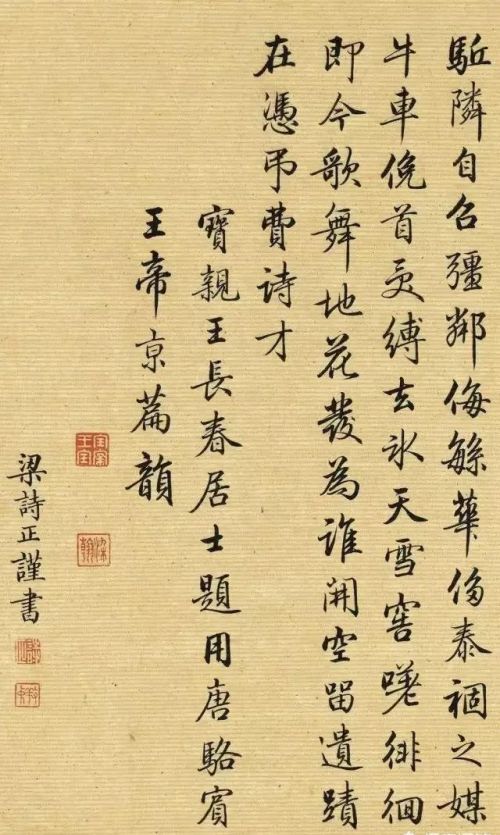 駈隣自召彊鄰侮緐華侈泰禍之媒
牛車俛首受縛去氷天雪窖嗟徘徊
即今歌舞地花發為誰開空留遺蹟
在憑吊費詩才
寶親王長春居士題用唐駱賓
王帝京篇韻
寶親王寶
梁詩正謹書